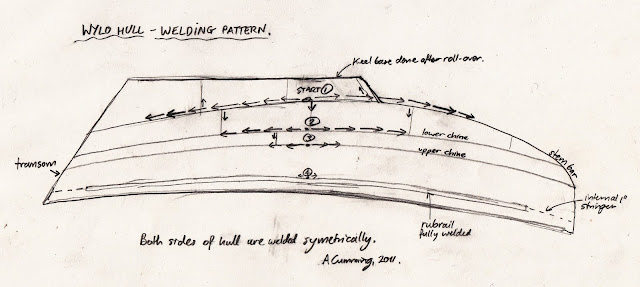 WYLO HULL - WELDING PATTERN.
Keel base done after roll-over.
START ①
②
lower chine
③
upper chine
stem bar
transom
④
internal 1"
stringer
rubrail
fully welded
Both sides of hull are welded symetrically.
A Cumming, 2011.